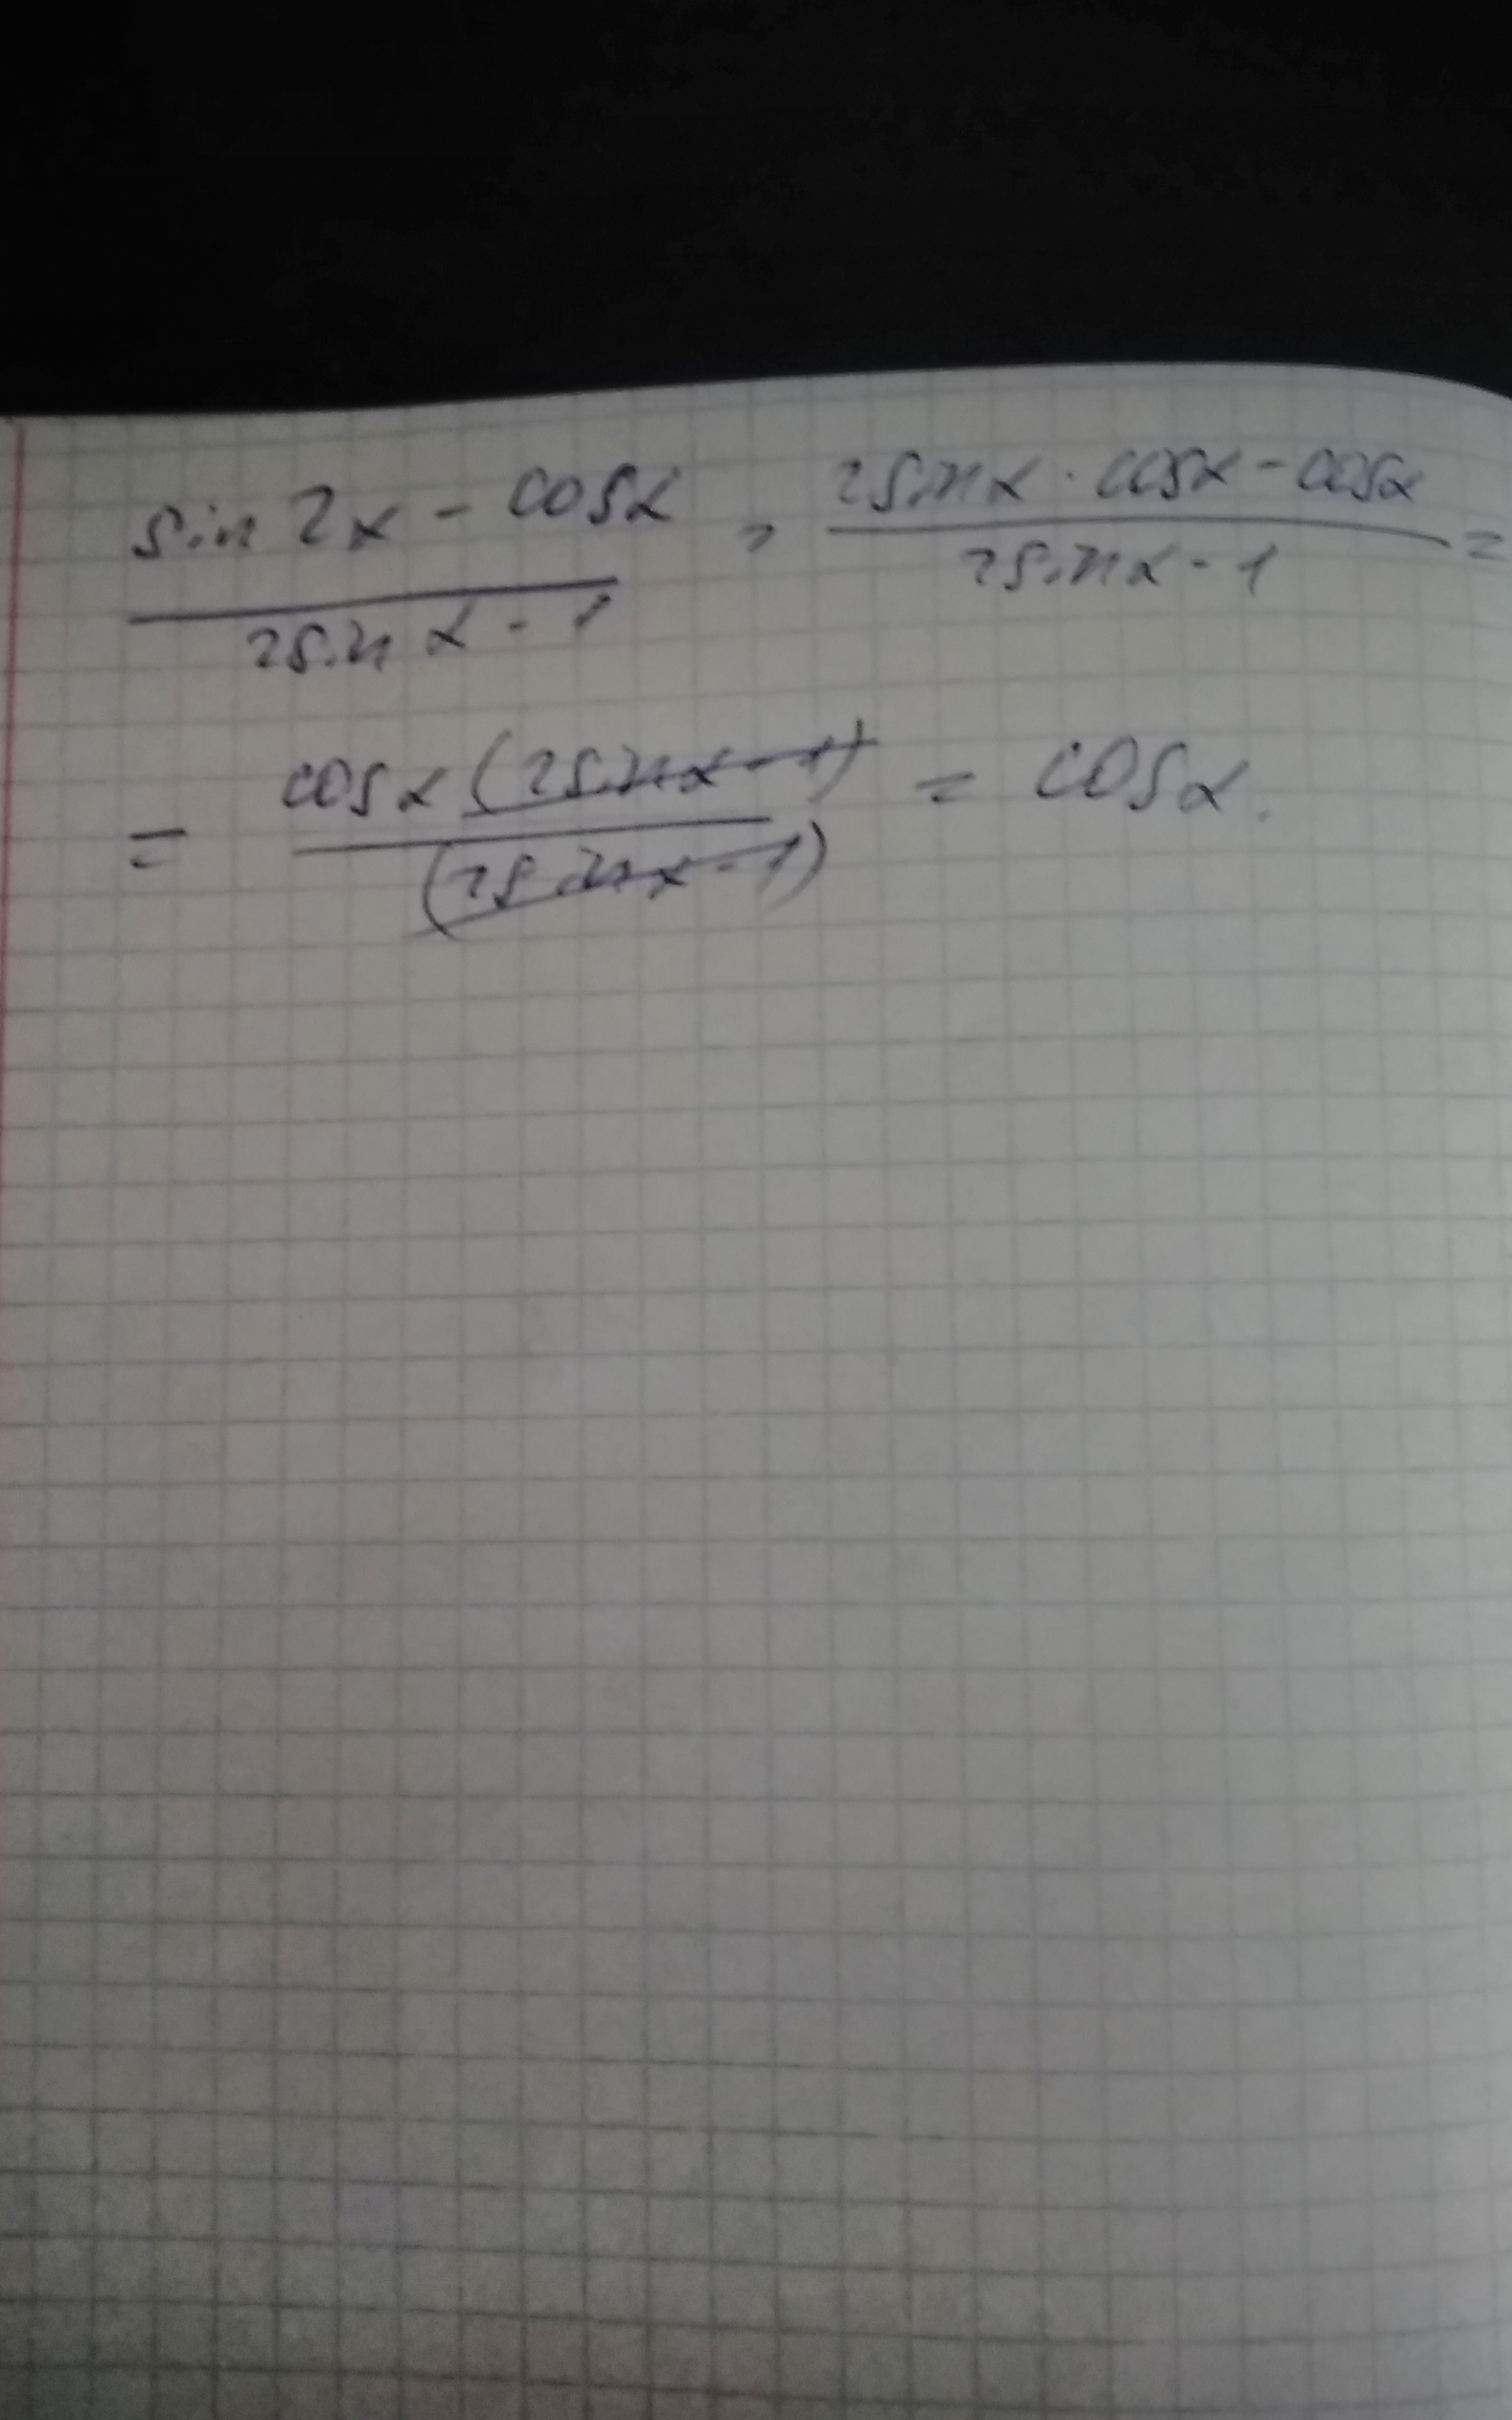 sin 2α - cosα / 2sin α - 1 = 2sinα · cosα - cosα / 2sinα - 1 =
= cosα (2sinα - 1) / (2sinα - 1) = cosα.